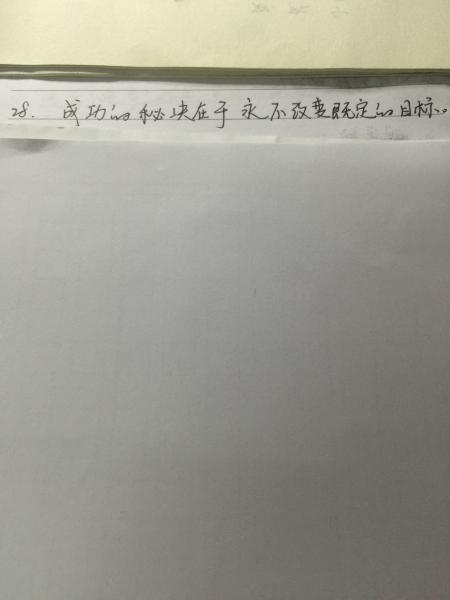 28. 成功的秘决在于永不改变既定的目标。